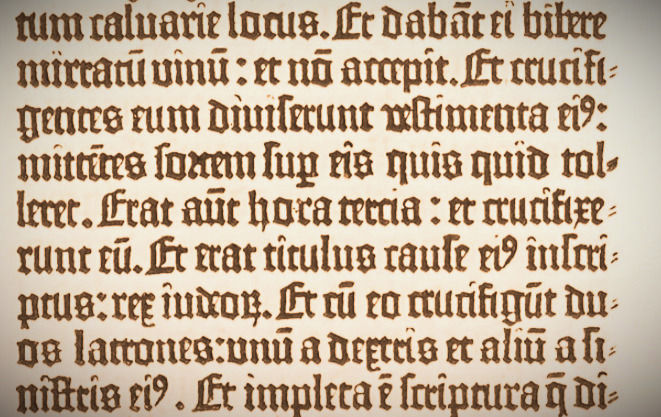 tum caluarie locus. Et dabāt ei bibere
mirratū vinū: et nō accepit. Et crucifi-
gentes eum diuiserunt vestimenta eiꝰ:
mittētes sortem suꝑ eis quis quid tol-
leret. Erat aūt hora tercia: et crucifixe-
runt eū. Et erat titulus cause eiꝰ inscri-
ptus: rex iudeoꝝ. Et cū eo crucifigūt du-
os latrones: unū a dextris et aliū a si-
nistris eiꝰ. Et impleta ē scriptura q̄ di-